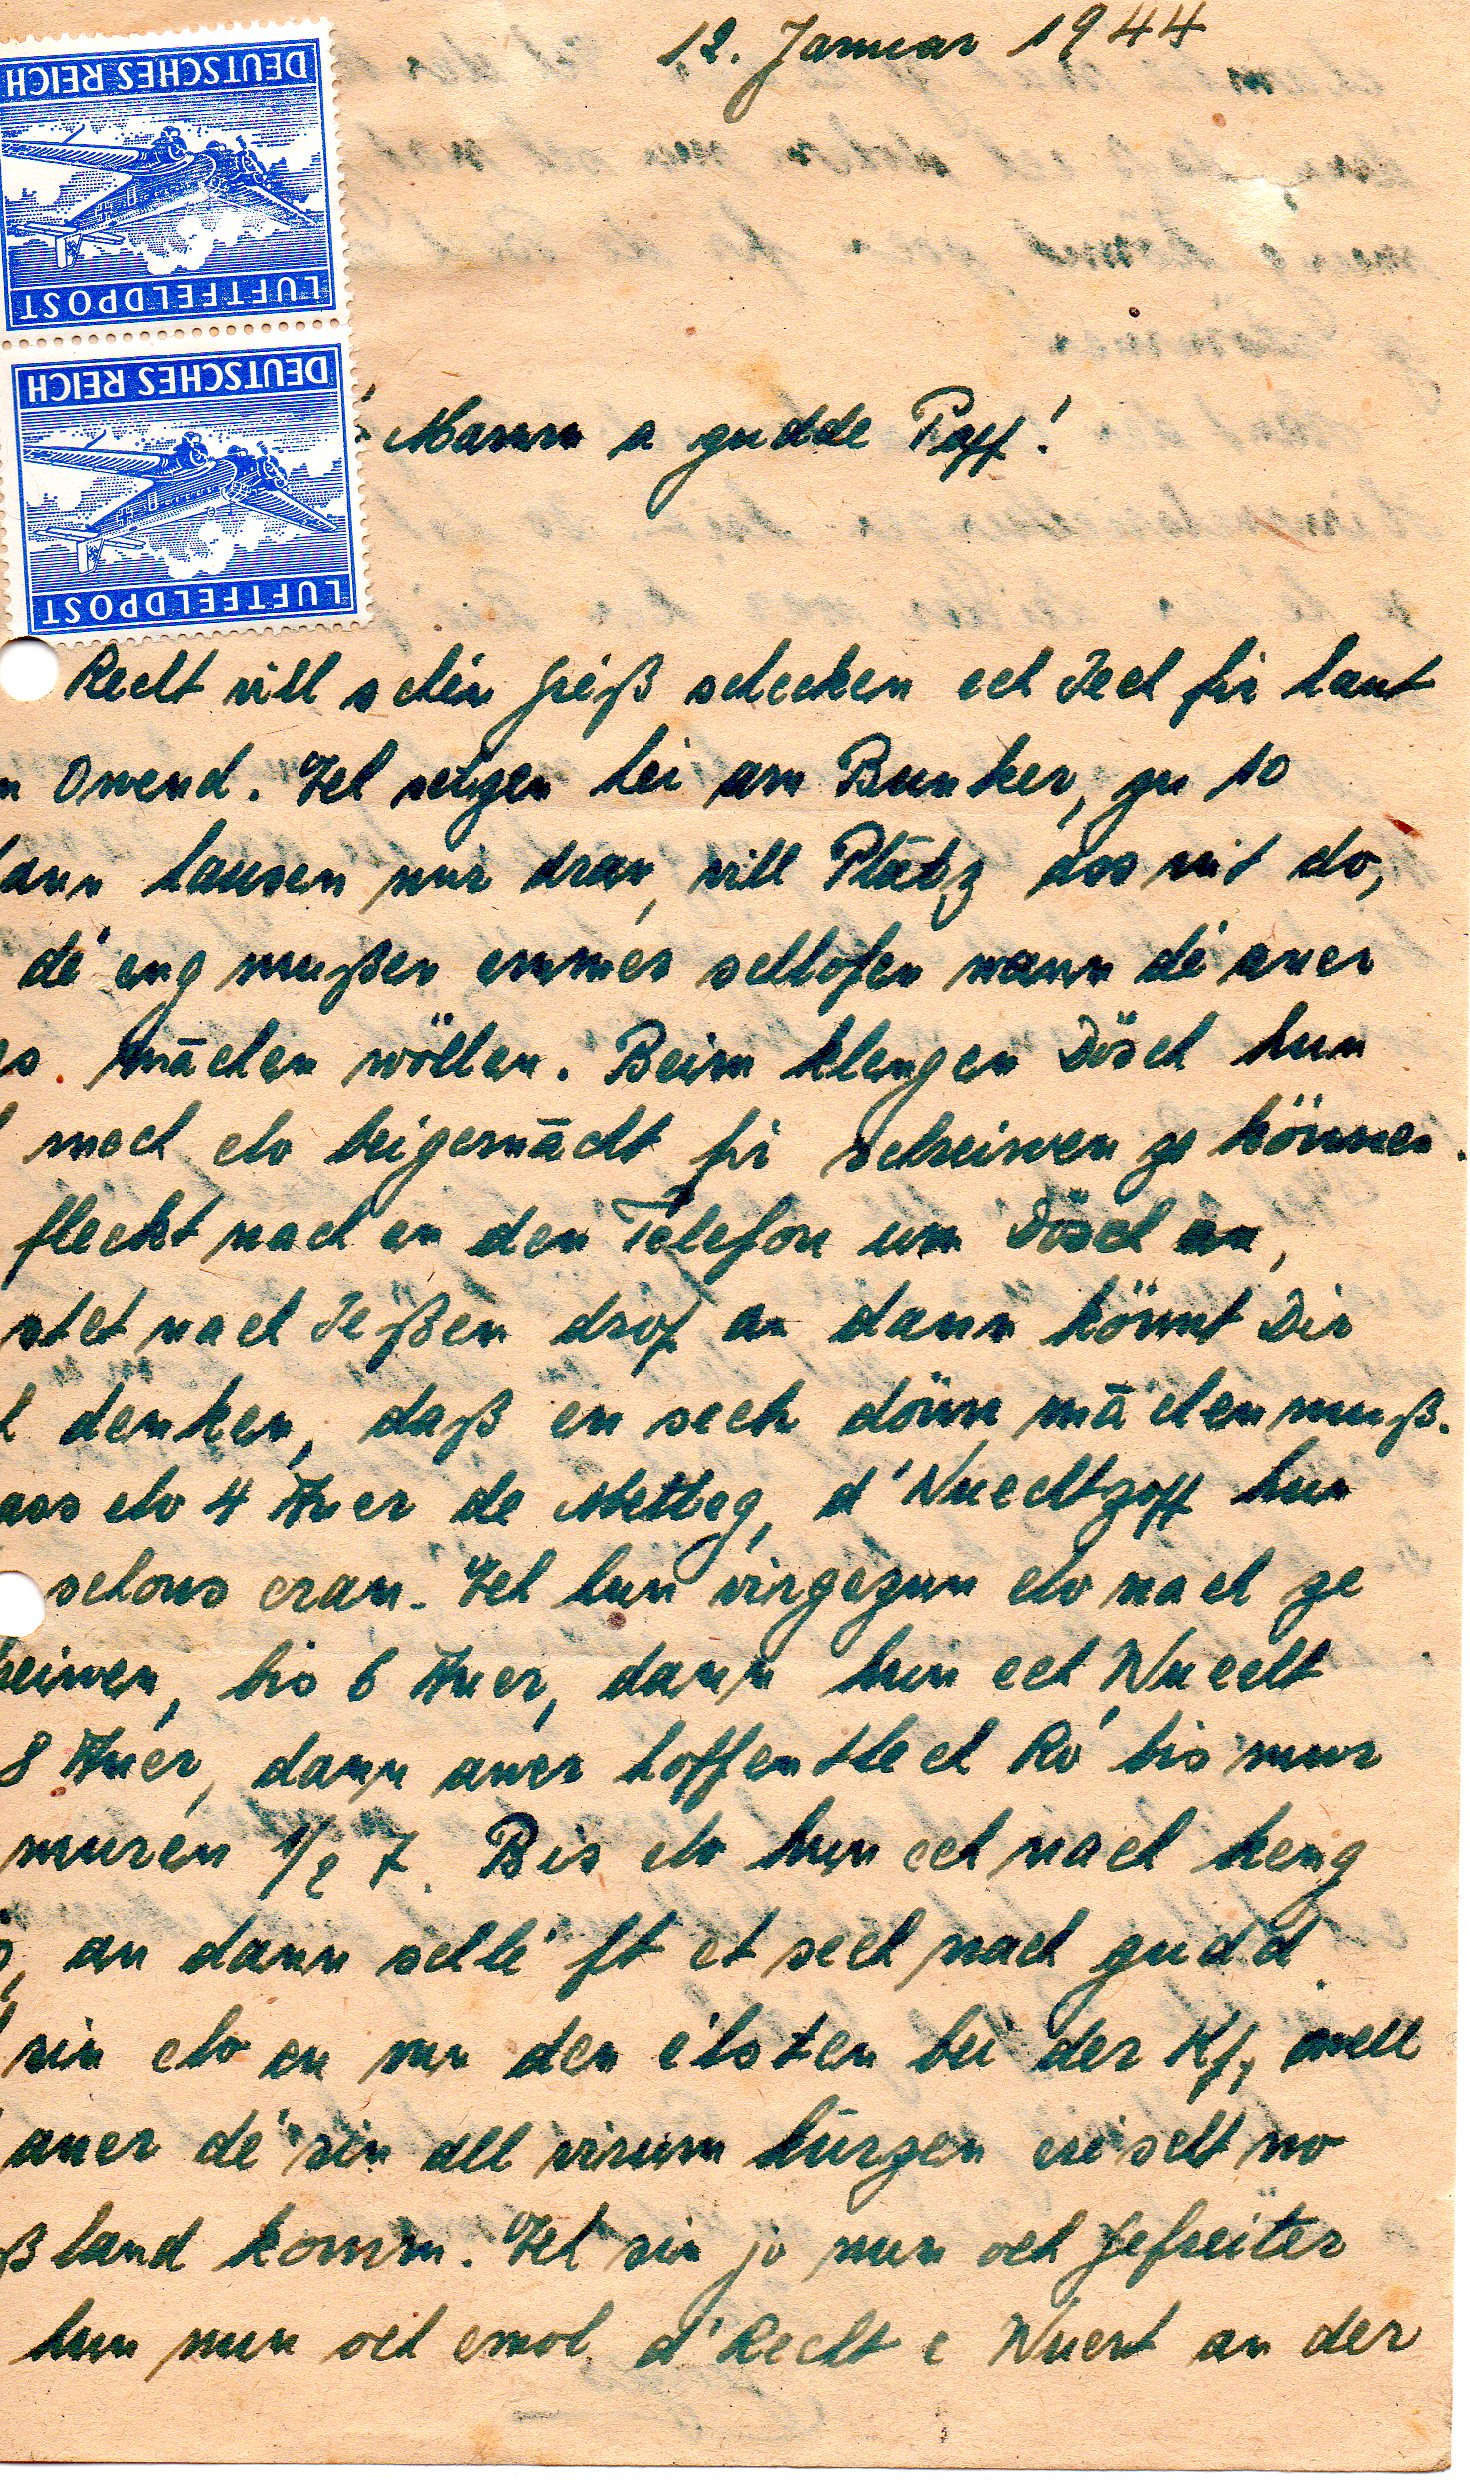 12. Januar 1944
DEUTSCHES REICH
LUFTFELDPOST
DEUTSCHES REICH
LUFTFELDPOST
Mamm a gudde Papp!
Recht vill schéin Gréiß schecken ech Iech fir haut
Owend. Mel hei am Bunker, zu 10
Mann hausen mir dran, vill Plätz ass nit do,
dé eng mußen emmer schlofen wann dé aner
mächen wöllen. Beim klengen Dösch hun
mech elo beigemächt fir schreiwen ze können.
flecht nach en den Telefon um Dösch an,
nach Ießen drof an dann könnt Dir
denken, daß en sech dönn mächen muß.
ass elo 4 Auer de Metteg, d'Wuecht hun
schons eran. Ech hun virgezun elo nach ze
bis 6 Auer, dann hun ech Wuecht
8 Auer, dann awer hoffentlech Ró bis mur
muren 1/2 7. Bis elo hun ech nach keng
an dann schléft et sech nach gudd.
sin elo en vun den élsten bei der Kp, well
aner dé sin all virum kurzen éischt no
ßland komm. Ech sin jo nun och Gefreiter
hun nun och emol d'Recht e Wuert an der